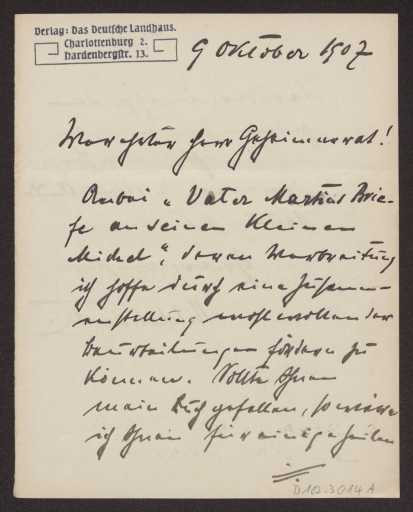 Verlag: Das Deutsche Landhaus.
Charlottenburg 2.
Hardenbergstr. 13.
9 Oktober 1907
Verehrter Herr Geheimerat!
Anbei „Vater Martins Brie-
fe an seinen kleinen
Michel", deren Verbreitung
ich hoffe durch eine Zusammen-
enstellung wohlwollender
Beurteilungen fördern zu
können. Sollte Ihnen
mein Buch gefallen, so wäre
ich Ihnen für einige Zeilen
D 102-3014 A